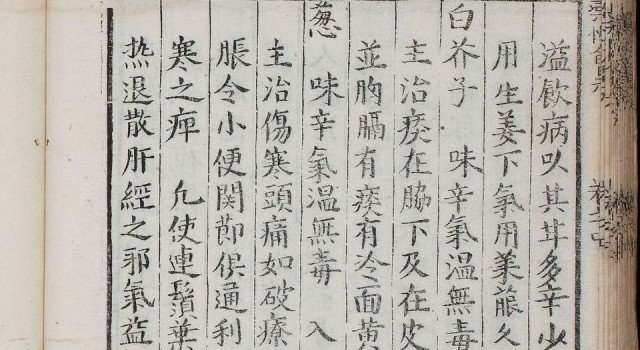 溢飲病以其甘多辛少
用生姜下氣用莱菔久
白芥子 味辛氣温無毒
主治痰在脇下及在皮
並胸膈有痰有冷面黄
葱 味辛氣温無毒 入
主治傷寒頭痛如破療
脹令小便関節俱通利
寒之痺 凢使連鬚葉
热退散肝經之邪氣益